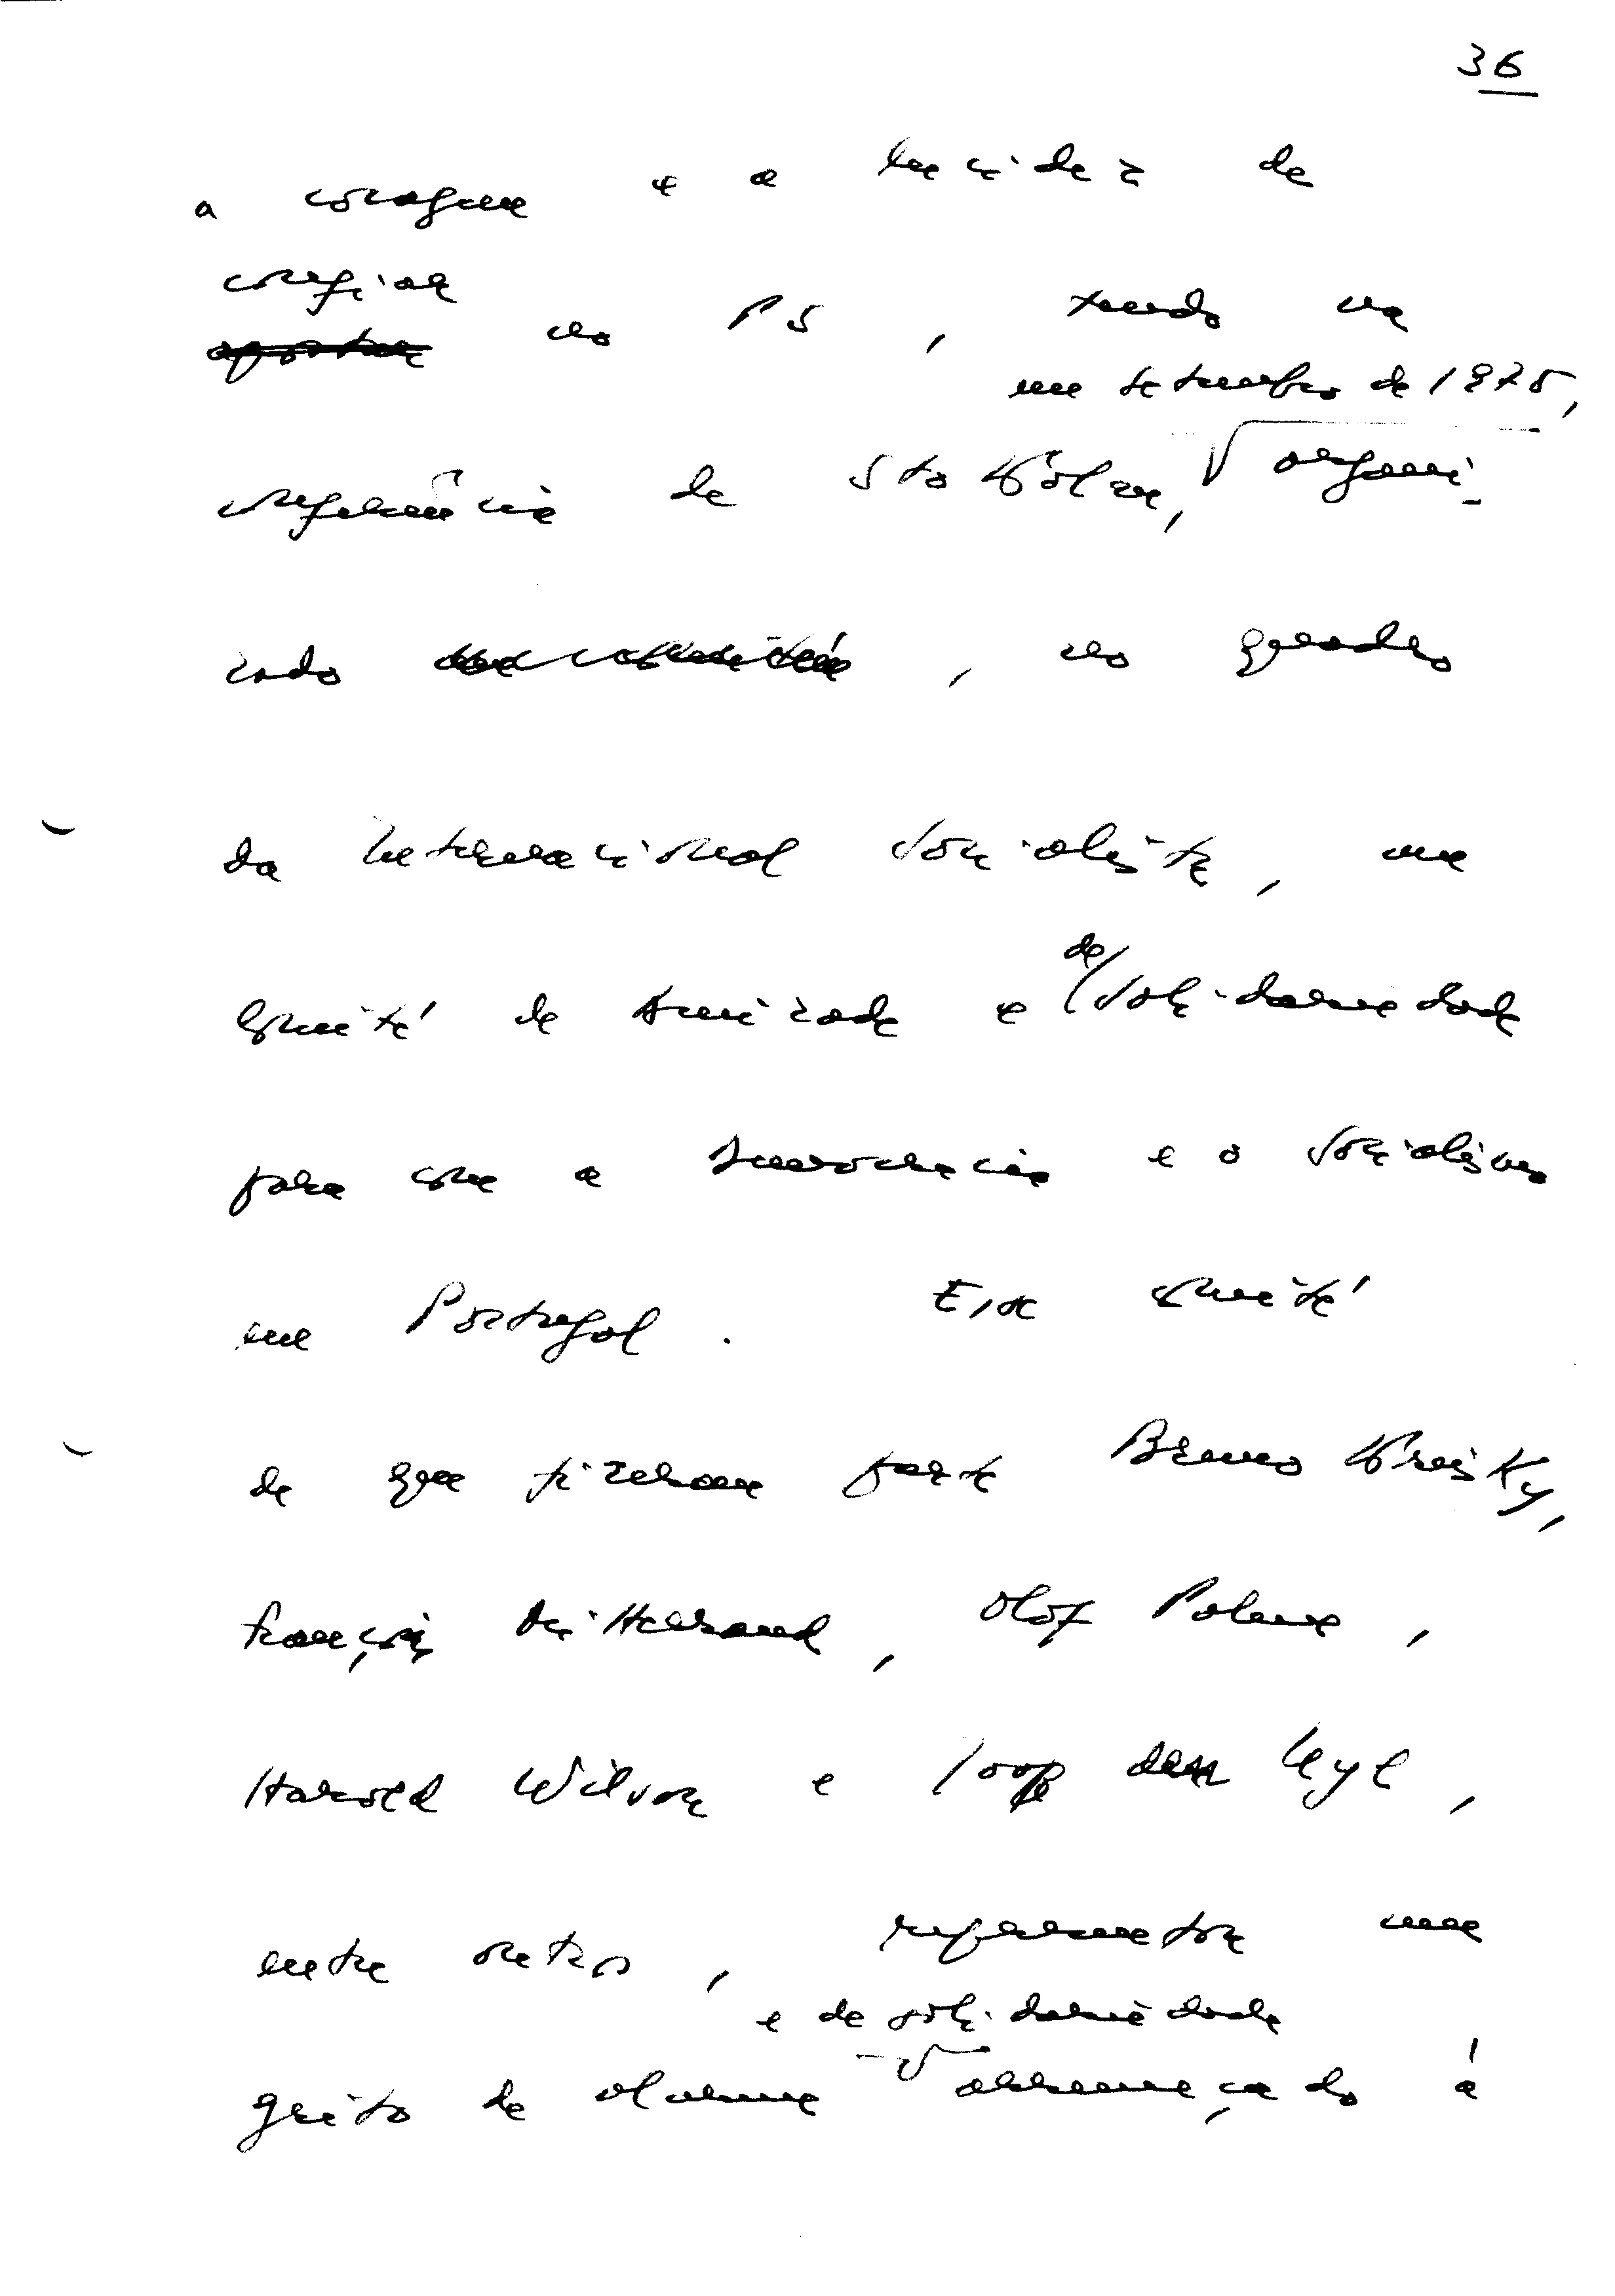 36
a coragem e a lucidez de
confiar
apostar no PS, tendo na
em setembro de 1975,
conferência de Stokolm, organi-
zado, no quadro
da Internacional Socialista, um
Comité de Amizade e de Solidariedade
para com a Democracia e o Socialismo
em Portugal. Esse Comité
de que fizeram parte Bruno Kreisky,
François Mitterrand, Olof Palme,
Harold Wilson e Joop den Uyl,
entre outros, representou um
e de solidariedade
grito de alarme arremeçado à